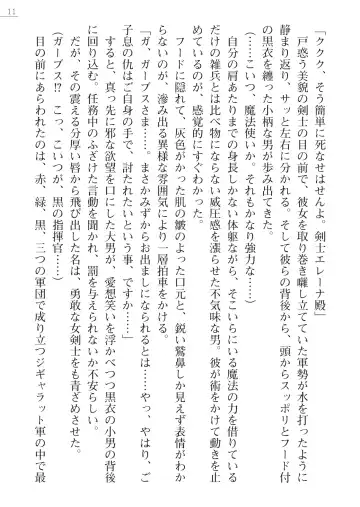 11
「ククク、そう簡単に死なせはせんよ。剣士エレーナ殿」
戸惑う美貌の剣士の目の前で、彼女を取り巻き囃し立てていた軍勢が水を打ったように
静まり返り、サッと左右に分かれる。そして彼らの背後から、頭からスッポリとフード付
の黒衣を纏った小柄な男が歩み出てきた。
（……こいつ、魔法使いか。それもかなり強力な……）
自分の肩あたりまでの身長しかない体躯ながら、そこいらにいる魔法の力を借りている
だけの雑兵とは比べ物にならない威圧感を漂らせた不気味な男。彼が術をかけて動きを止
めているのが、感覚的にすぐわかった。
フードに隠れて、灰色がかった肌の皺のよった口元と、鋭い鷲鼻しか見えず表情がわか
らないのが、滲み出る異様な雰囲気により一層拍車をかける。
「ガ、ガーブスさま……。まさかみずからお出ましになられるとは……やっ、やはり、ご
子息の仇はご自身の手で、討たれたいという事、ですか……」
すると、真っ先に邪な欲望を口にした大男が、愛想笑いを浮かべつつ黒衣の小男の背後
に回り込む。任務中のふざけた言動を聞かれ、罰を与えられないか不安らしい。
だが、その震える分厚い唇から飛び出した名は、勇敢な女剣士をも青ざめさせた。
（ガーブス⁉　こっ、こいつが、黒の指揮官……）
目の前にあらわれたのは、赤、緑、黒、三つの軍団で成り立つジギャラット軍の中で最